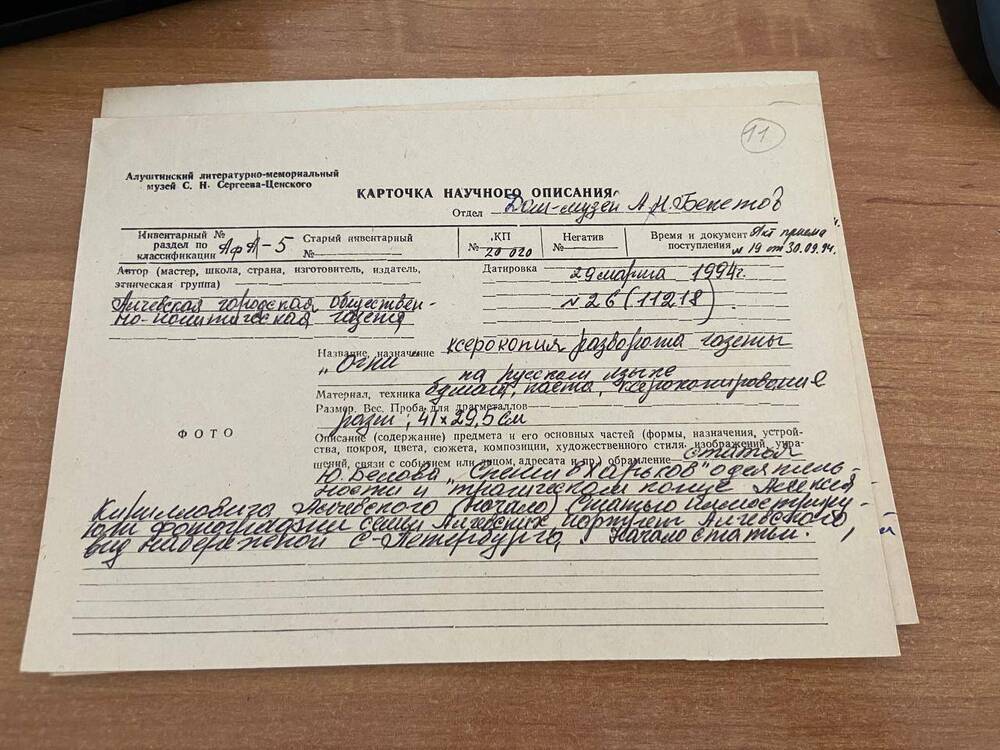 11
Алуштинский литературно-мемориальный
музей С. Н. Сергеева-Ценского
КАРТОЧКА НАУЧНОГО ОПИСАНИЯ
Отдел Дом-музей А.Н. Бекетов
Инвентарный №
раздел по
классификации АфА-5
Старый инвентарный
№
КП
№ 20 020
Негатив
№
Время и документ Акт приема
поступления № 19 от 30.09.94г.
Автор (мастер, школа, страна, изготовитель, издатель,
этническая группа)
Алчевская городская обществен-
но-политическая газета
Датировка
29 марта 1994г.
№ 26 (11218)
Название, назначение ксерокопия разворота газеты
„Огни"
на русском языке
Материал, техника бумага, паста, ксерокопирование
Размер. Вес. Проба для драгметаллов
разм; 41 х 29,5 см
ФОТО
Описание (содержание) предмета и его основных частей (формы, назначения, устрой-
ства, покроя, цвета, сюжета, композиции, художественного стиля, изображений, укра-
шений, связи с событием или лицом, адресата и пр.) обрамление статья
Ю. Белова „ Харьков" о деятель-
ности и трагическом конце Алексея
Кирилловича Алчевского (начало) Статью иллюстриру-
ют фотографии семьи Алчевских портрет Алчевского,
вид набережной С-Петербурга. Начало статьи.